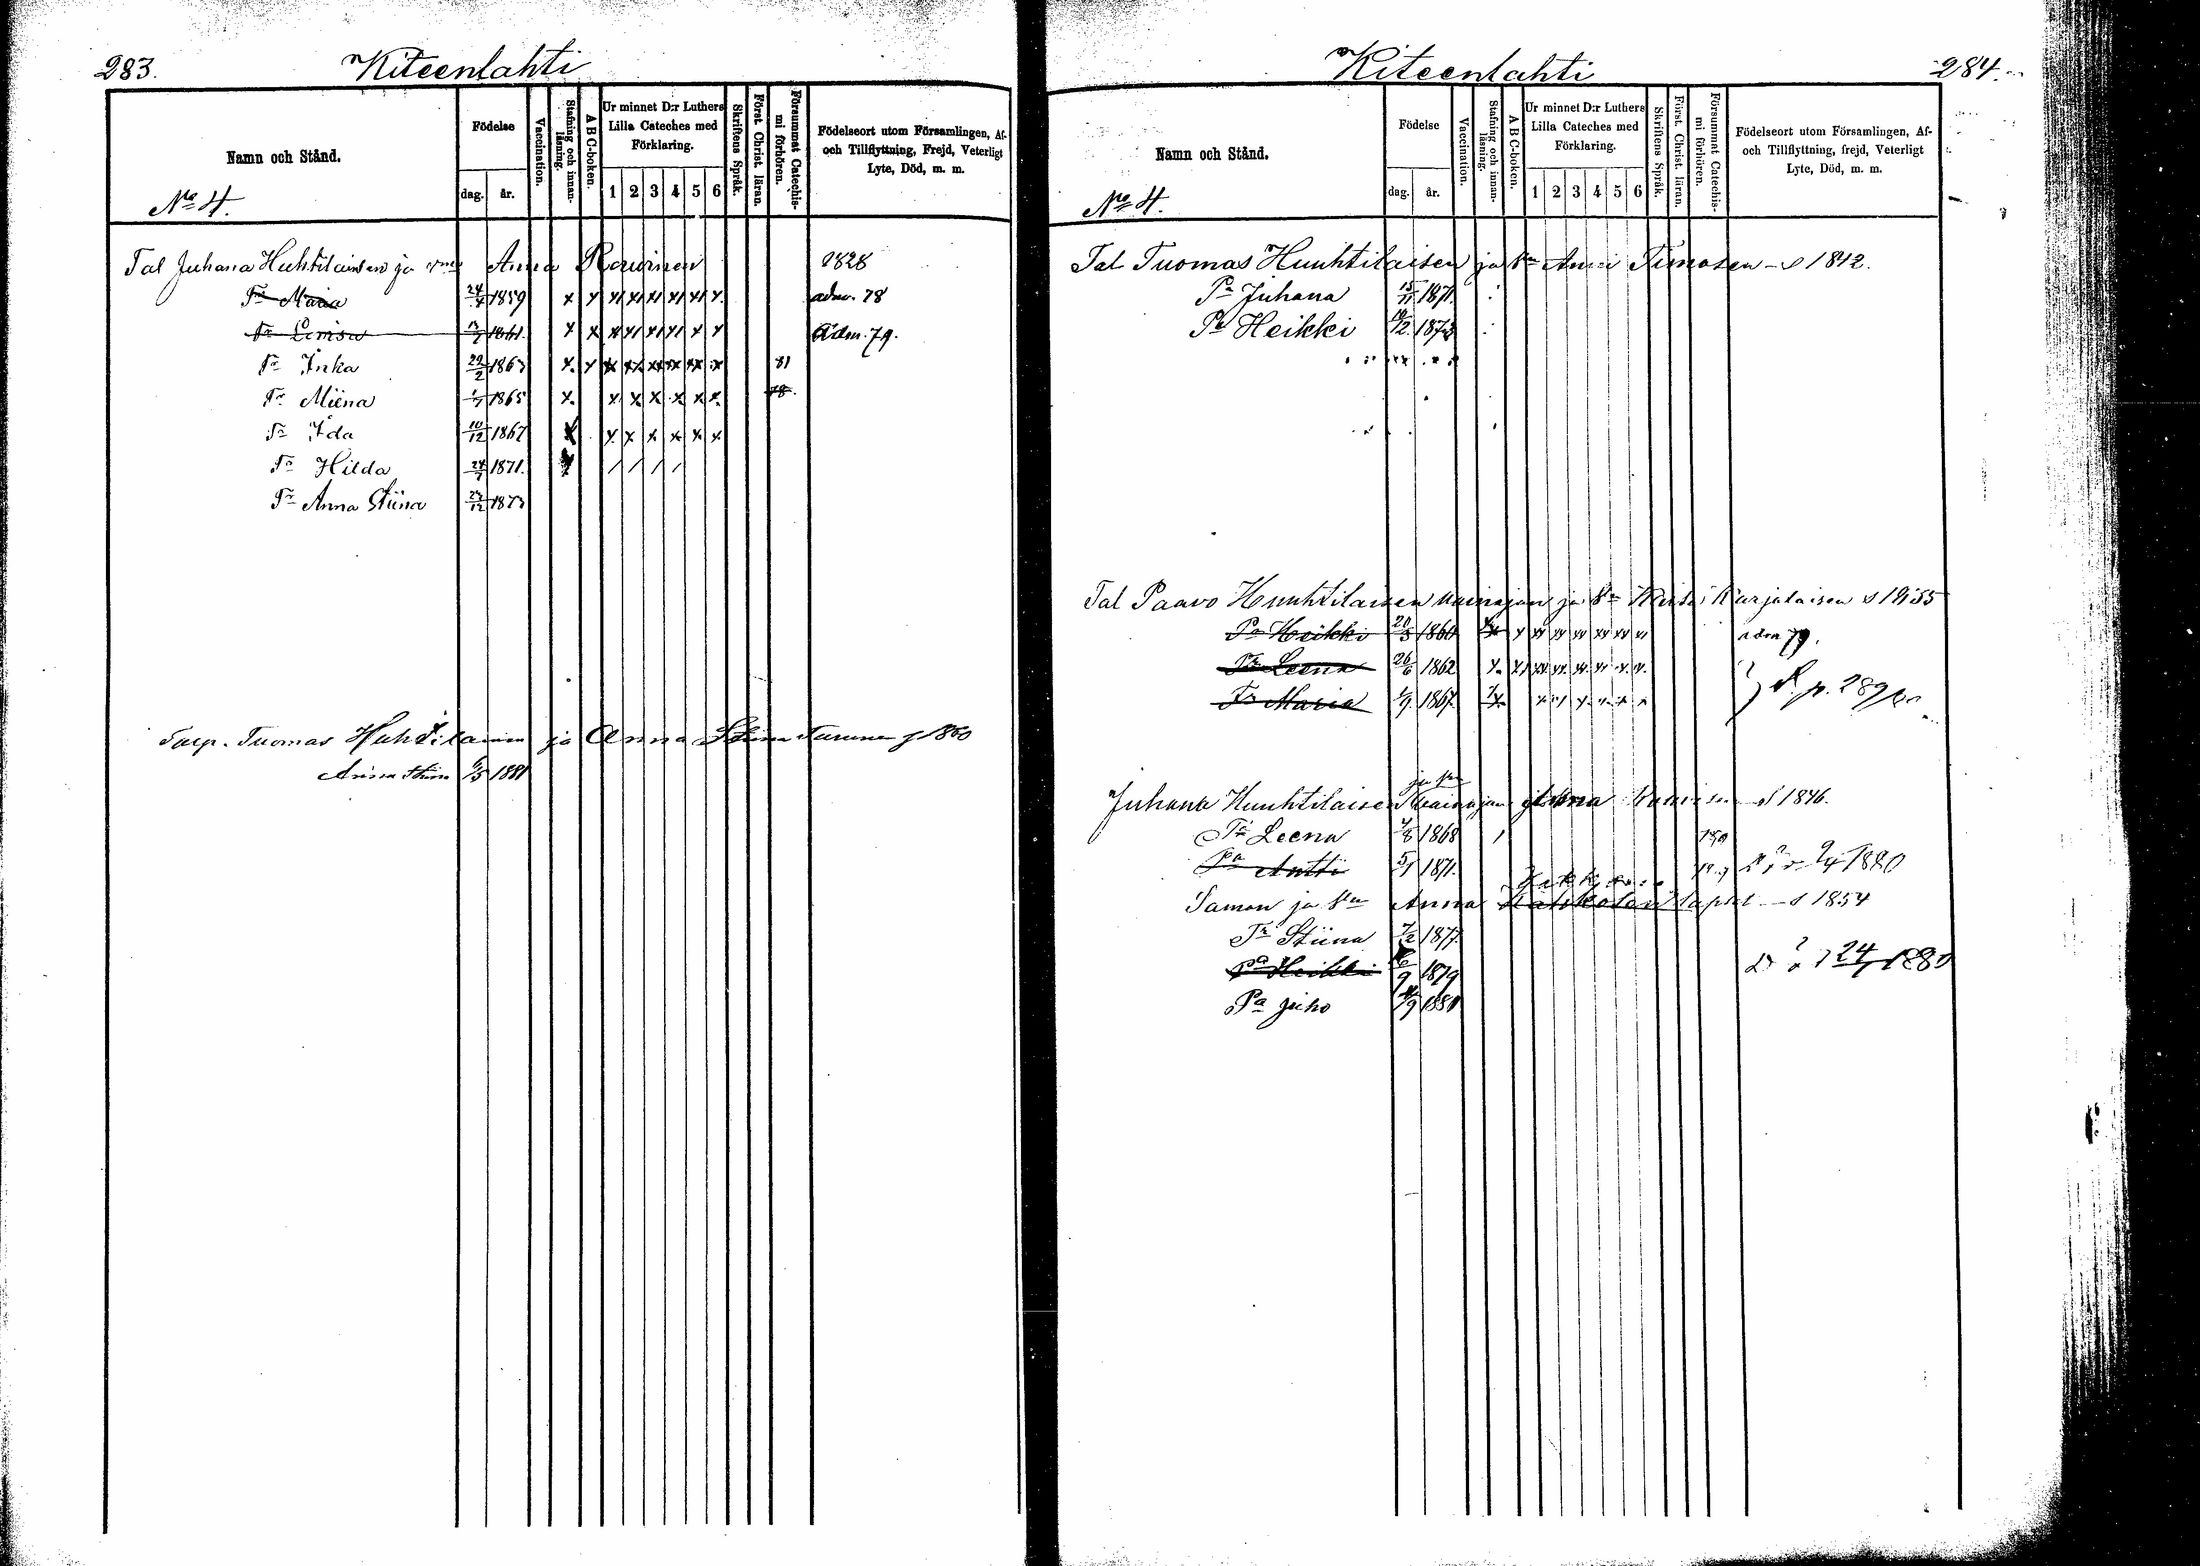 283.
Kiteenlahti
Namn och Stånd.
No 4.
Födelse
dag.
år.
Vaccination.
Stafning och innanläsning.
A B C-boken.
Ur minnet D:r Luthers Lilla Cateches med Förklaring.
1 2 3 4 5 6
Skriftens Språk.
Först. Christ. läran.
Försummat Catechismi förhören.
Födelseort utom Församlingen, Af- och Tillflyttning, Frejd, Veterligt Lyte, Död, m. m.
Tal Juhana Huhtilainen ja vmo Anna Rouvinen 1828
Tr Maria 24/4 1859 x x x x x x x x adm. 78
Tr Lovisa 1861. x x x x x x x x Adm. 79.
Tr Inka 22/2 1863 x x x x x x x x 81
Tr Miina 1865 x x x x x x x 78
Tr Ida 10/12 1867 x x x x x x x
Tr Hilda 24/7 1871. x / / / /
Tr Anna Stiina 23/12 1873
Torp. Tuomas Huhtilainen ja Anna Stiina Turunen 1860
Anna Stiina 6/5 1881
284.
Kiteenlahti
Namn och Stånd.
No 4.
Födelse
dag.
år.
Vaccination.
Stafning och innanläsning.
A B C-boken.
Ur minnet D:r Luthers Lilla Cateches med Förklaring.
1 2 3 4 5 6
Skriftens Språk.
Först. Christ. läran.
Försummat Catechismi förhören.
Födelseort utom Församlingen, Af- och Tillflyttning, frejd, Veterligt Lyte, Död, m. m.
Tal Tuomas Huuhtilaisen ja Anni Timosen 1842.
Pa Juhana 15/11 1871.
Pa Heikki 19/12 1873
Tal Paavo Huuhtilaisen vainajan ja Karjalaisen
Pa Heikki 20/3 1860 adm 79.
Tr Leena 26/6 1862 p. 289
Tr Maria 1/9 1867.
Juhana Huuhtilaisen vainajan ja Anna 1846.
Tr Leena 4/8 1868
Pa Antti 5/1 1871. 9/4 1880
Saman ja Anna lapset 1854
Tr Stiina 7/2 1877.
Pa Heikki 6/9 1879 24/1 1880
Pa Juho 1881